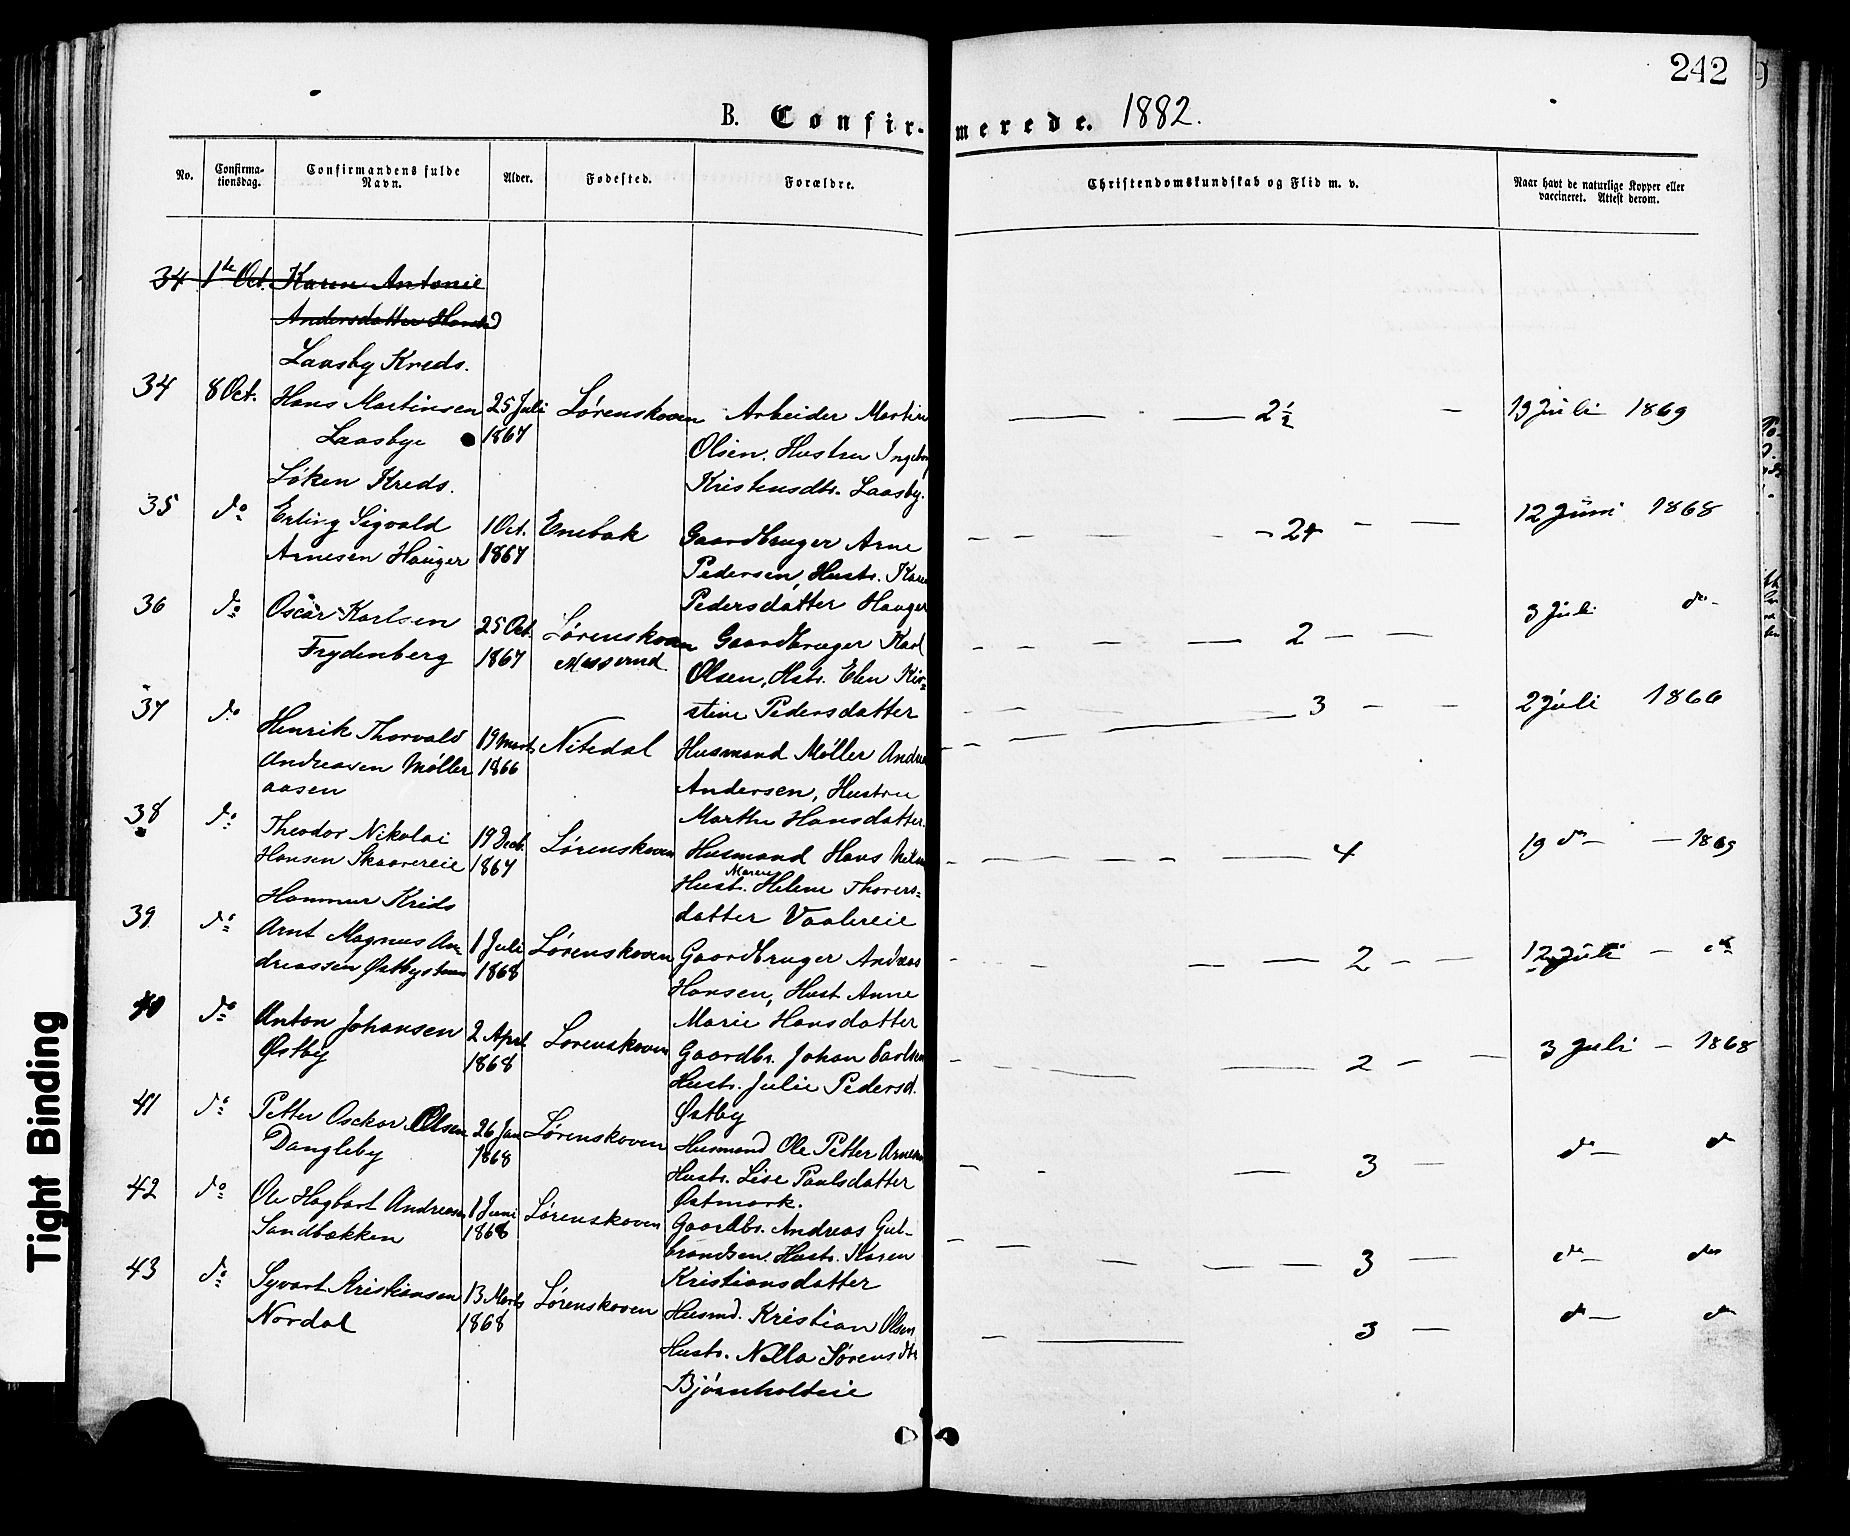 242
B. Confirmerede. 1882.
No.
Confirma-
tionsdag.
Confirmandens fulde
Navn.
Alder.
Fødested.
Forældre.
Christendomskundskab og Flid m. v.
Naar havt de naturlige Kopper eller
vaccineret. Attest derom.
34 1te Oct. Karen Antonie
Andersdatter
Laasby Kreds.
34 8 Oct. Hans Martinsen 25 Juli Lørenskoven Arbeider Martin — — 2½ — 19 Juli 1869
Laasbye 1867 Olsen. Hustru Ingeborg
Løken Kreds. Kristensdtr. Laasby.
35 do Erling Sigvald 1 Oct. Enebak Gaardbruger Arne — — — — 2+ — — 12 Juni 1868
Arnesen Hauger 1867 Pedersen, Hustr. Karen
Pedersdatter Hauger
36 do Oscar Karlsen 25 Oct. Lørenskoven Gaardbruger Karl — — — — 2 — — 3 Juli do
Frydenberg 1867 Olsen, Hstr. Elen Kir=
stine Pedersdatter
37 do Henrik Thorvald 19 Marts Nitedal Husmand Møller Andreas — — 3 — — 2 Juli 1866
Andreasen Møller 1866 Andersen, Hustru
aasen Marthe Hansdatter.
38 do Theodor Nikolai 19 Decb. Lørenskoven Husmand Hans — — — — — 4 19 do — 1869
Hansen Skaarereie 1867 Hustr. Maren Helene Thorers=
Hammer Kreds datter Vaalereie
39. do Arnt Magnus An- 1 Juli Lørenskoven Gaardbruger Andreas — — — — 2 — — 12 Juli — do
dreassen 1868 Hansen, Hust. Anne
Marie Hansdatter
40 do Anton Johansen 2 April Lørenskoven Gaardbr. Johan Carlsen — — — 2 — — 3 Juli — 1868
Østby 1868 Hustr. Julie Pedersd.
Østby
41 do Petter Osckar Olsen 26 Jan Lørenskoven Husmand Ole Petter Arnesen — — — 3 — do — do
Dangleby 1868 Hustr. Lise Paulsdatter
Østmark.
42 do Ole Hagbart Andreasen 1 Juni Lørenskoven Gaardbr. Andreas Gul- — — — — — 3 — do — do
Sandbakken 1868 brandsen. Hustr. Karen
Kristiansdatter
43 do Syvart Kristiansen 13 Marts Lørenskoven Husmd. Kristian Olsen — — 3 — do — do
Nordal 1868 Hustr. Nella Sørensdtr
Bjørnholteie
Tight Binding